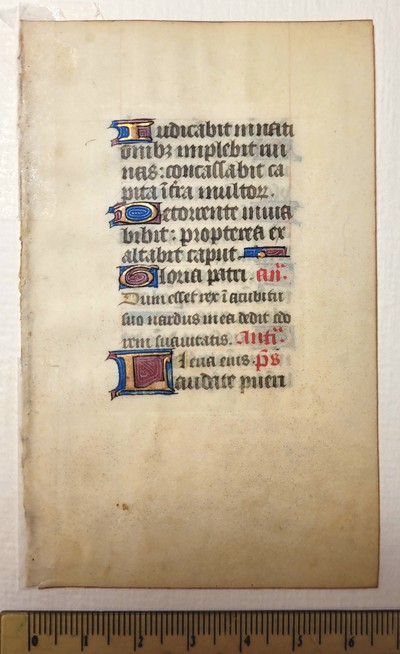 Iudicabit in nati
onibꝫ implebit rui
nas: concassabit ca
pita i̅ t̅ra multoꝝ.
De torrente in uia
bibit: propterea ex
altabit caput.
Gloria patri. an̅.
Dum esset rex i̅ acubitu
suo nardus mea dedit odo
rem suauitatis. Anti̅.
Leua eius. p̅s
Laudate pueri
0 1 2 3 4 5 6